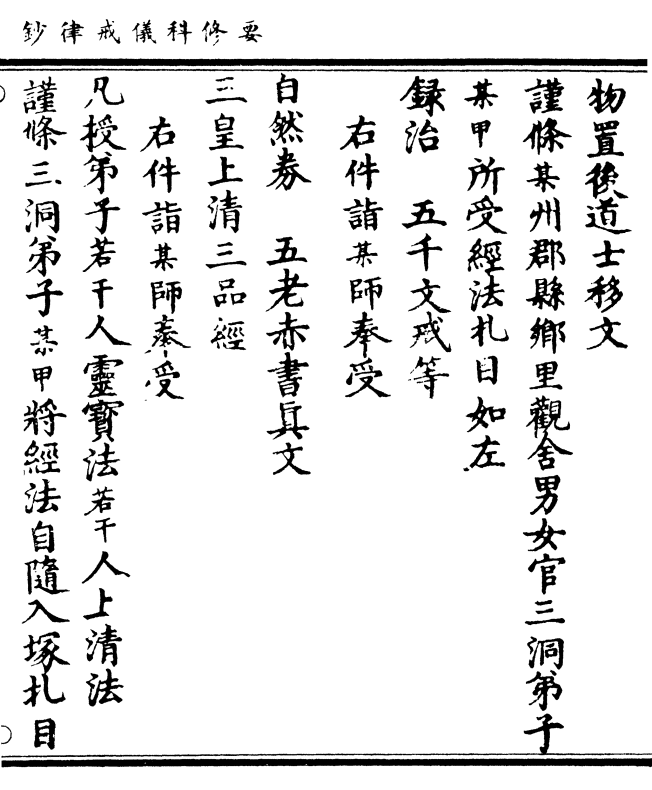 要修科儀戒律鈔
物置後道士移文
謹條某州郡縣鄉里觀舍男女官三洞弟子
某甲所受經法札目如左
録治　五千文戒等
右件詣某師奉受
自然券　五老赤書眞文
三皇上清三品經
右件詣某師奉受
凡授弟子若干人靈寶法若干人上清法
謹條三洞弟子某甲將經法自隨入塚札目